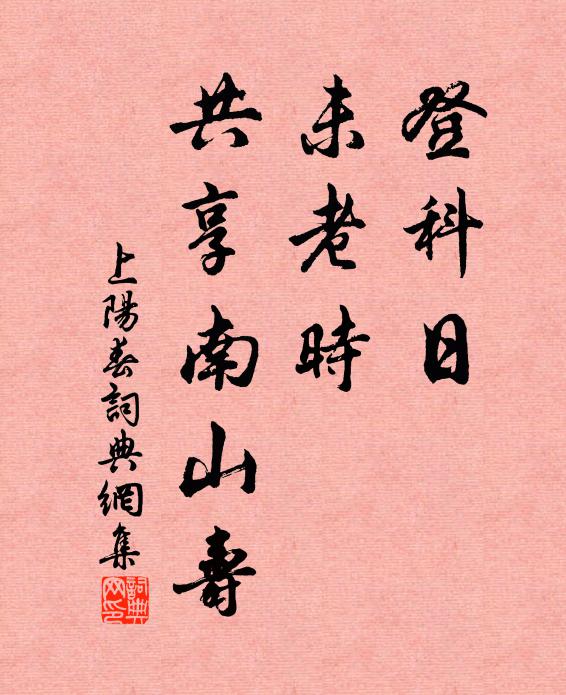 登科日
未老時
共享南山壽
上陽春詞典網集
詞典
网印